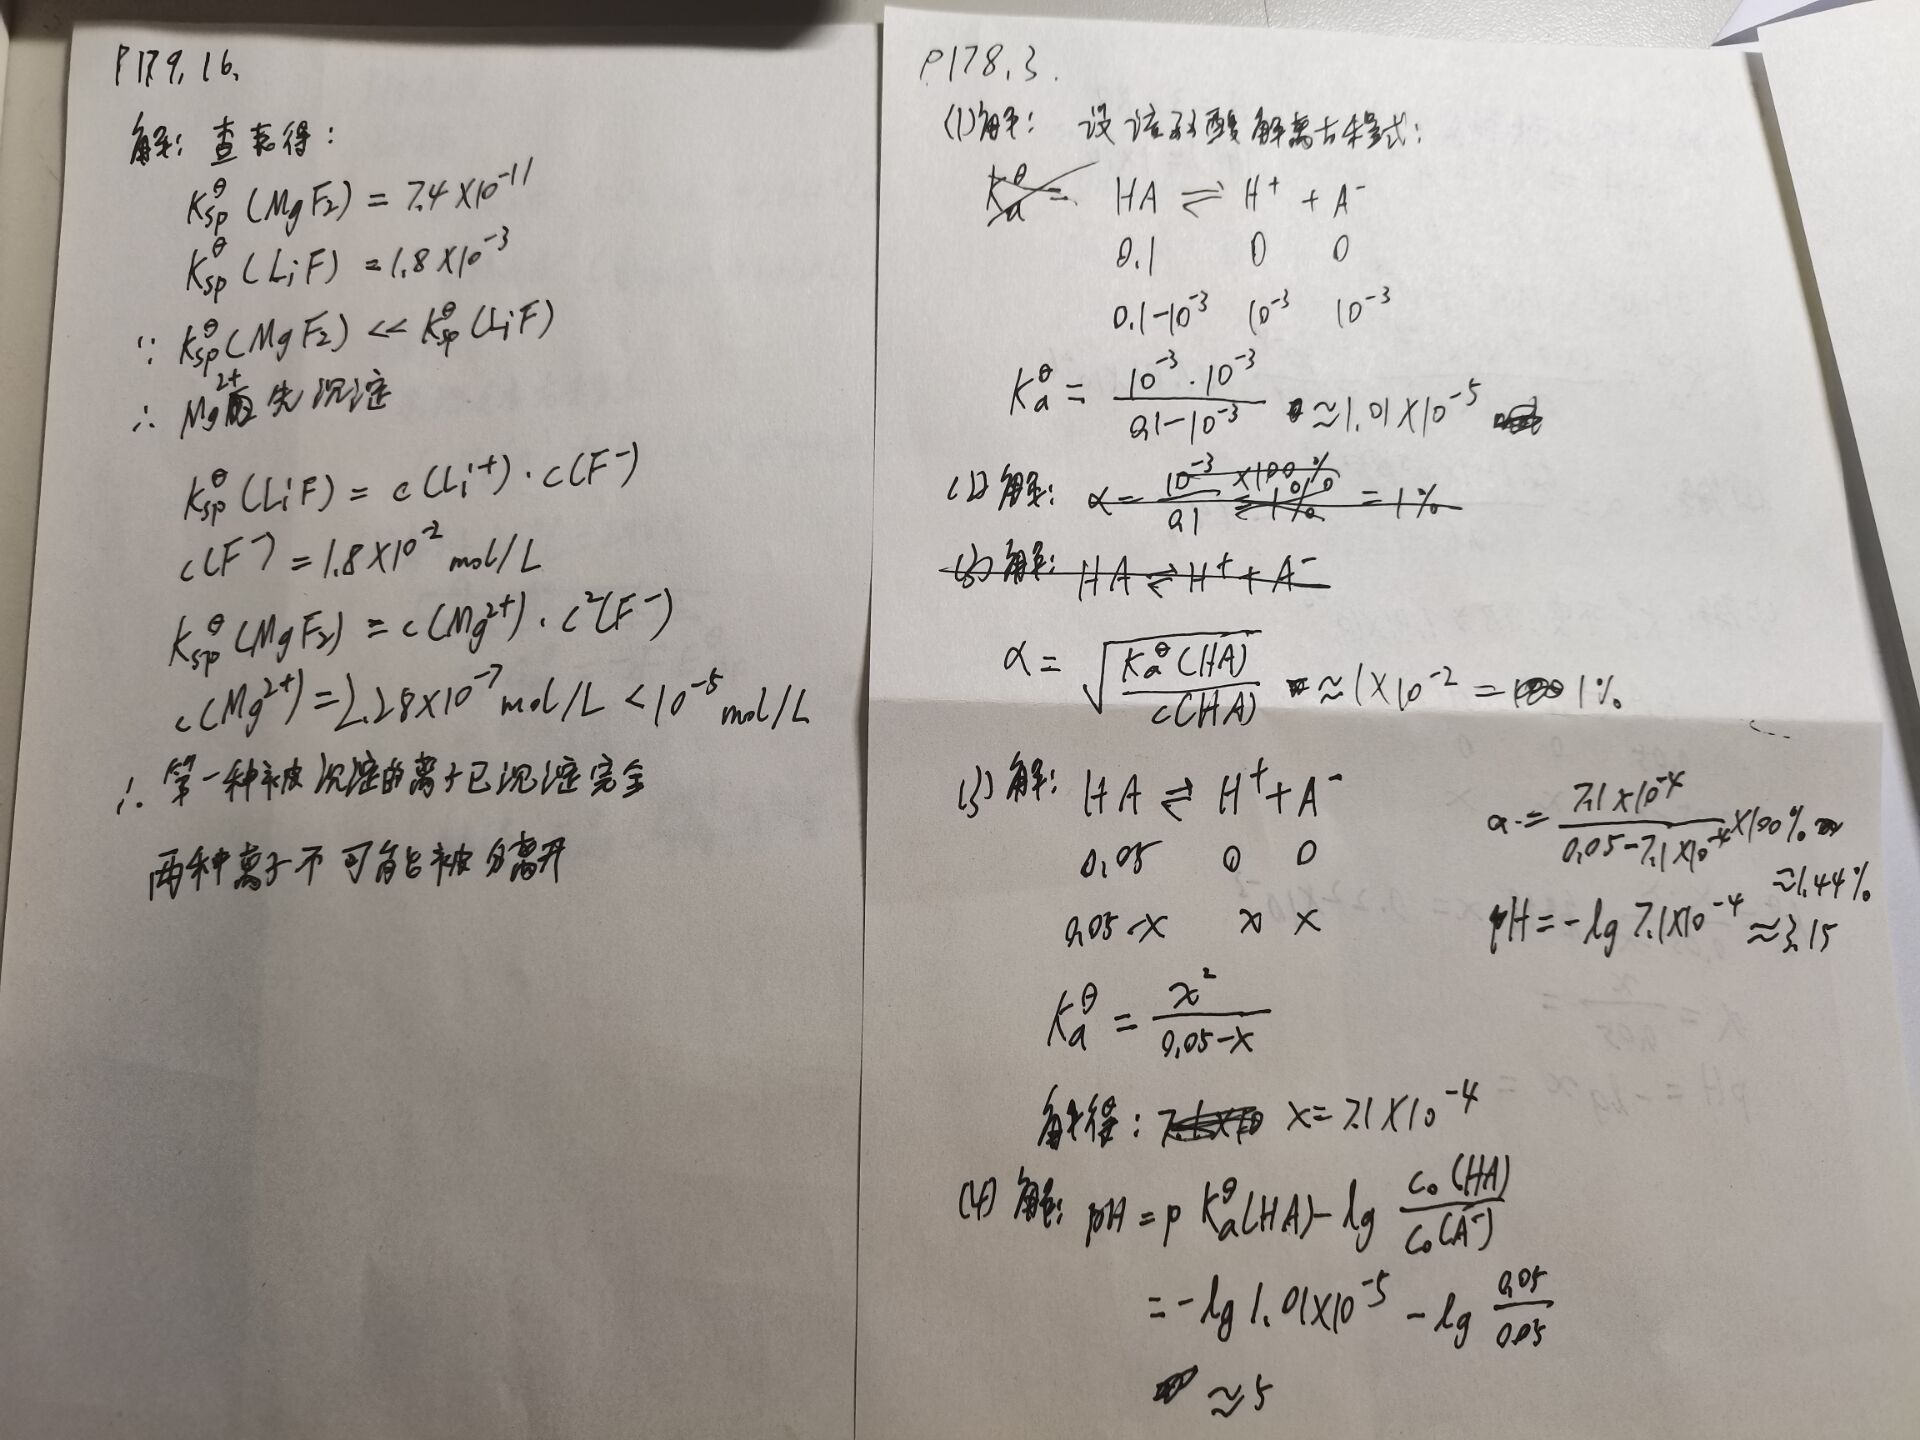 P179.16.
解: 查表得:
Kspθ(MgF2) = 7.4×10^-11
Kspθ(LiF) = 1.8×10^-3
∵ Kspθ(MgF2) << Kspθ(LiF)
∴ Mg2+先沉淀
Kspθ(LiF) = c(Li+)·c(F-)
c(F-) = 1.8×10^-2 mol/L
Kspθ(MgF2) = c(Mg2+)·c²(F-)
c(Mg2+) = 2.28×10^-7 mol/L < 10^-5 mol/L
∴ 第一种被沉淀的离子已沉淀完全
两种离子不可能被分离开
P178.3.
(1)解: 设该弱酸解离方程式:
Kaθ = HA ⇌ H+ + A-
0.1 0 0
0.1-10^-3 10^-3 10^-3
Kaθ = (10^-3·10^-3)/(0.1-10^-3) ≈ 1.01×10^-5
(2)解: α = 10^-3/0.1 ×100% = 1% = 1%
(3)解: HA ⇌ H+ + A-
α = √(Kaθ(HA)/c(HA)) ≈ 1×10^-2 = 1%
(3)解: HA ⇌ H+ + A-
0.05 0 0
0.05-x x x
Kaθ = x²/(0.05-x)
解得: x = 7.1×10^-4
α = 7.1×10^-4/(0.05-7.1×10^-4) ×100%
≈1.44%
pH = -lg 7.1×10^-4 ≈ 3.15
(4)解: pH = pKaθ(HA) - lg c0(HA)/c0(A-)
= -lg 1.01×10^-5 - lg 0.05/0.05
≈ 5